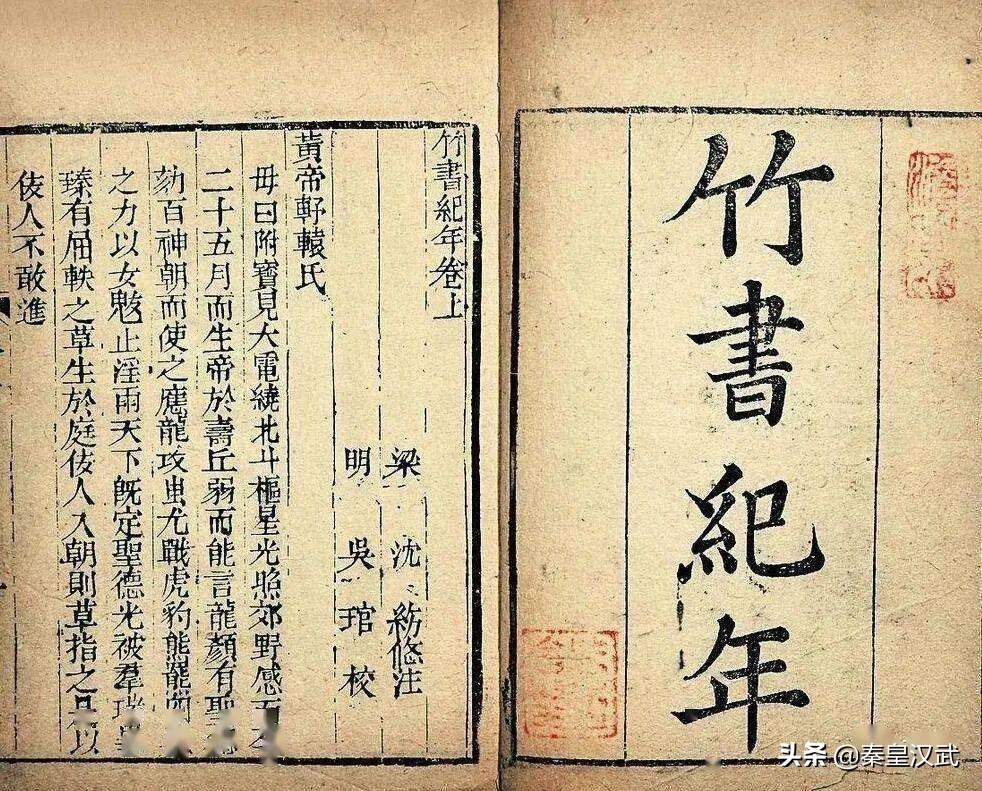 竹書紀年
竹書紀年卷上
梁 沈 注
明 吳琯校
黃帝軒轅氏
母曰附寶見大電繞北斗樞星光照郊野感而
二十五月而生帝於壽丘弱而能言龍顏有聖
劾百神朝而使之應龍攻蚩尤戰虎豹熊羆四
之力以女魃止淫雨天下既定聖德光被羣瑞畢
臻有屈軼之草生於庭佞人入朝則草指之是以
佞人不敢進
头条 @秦皇汉武